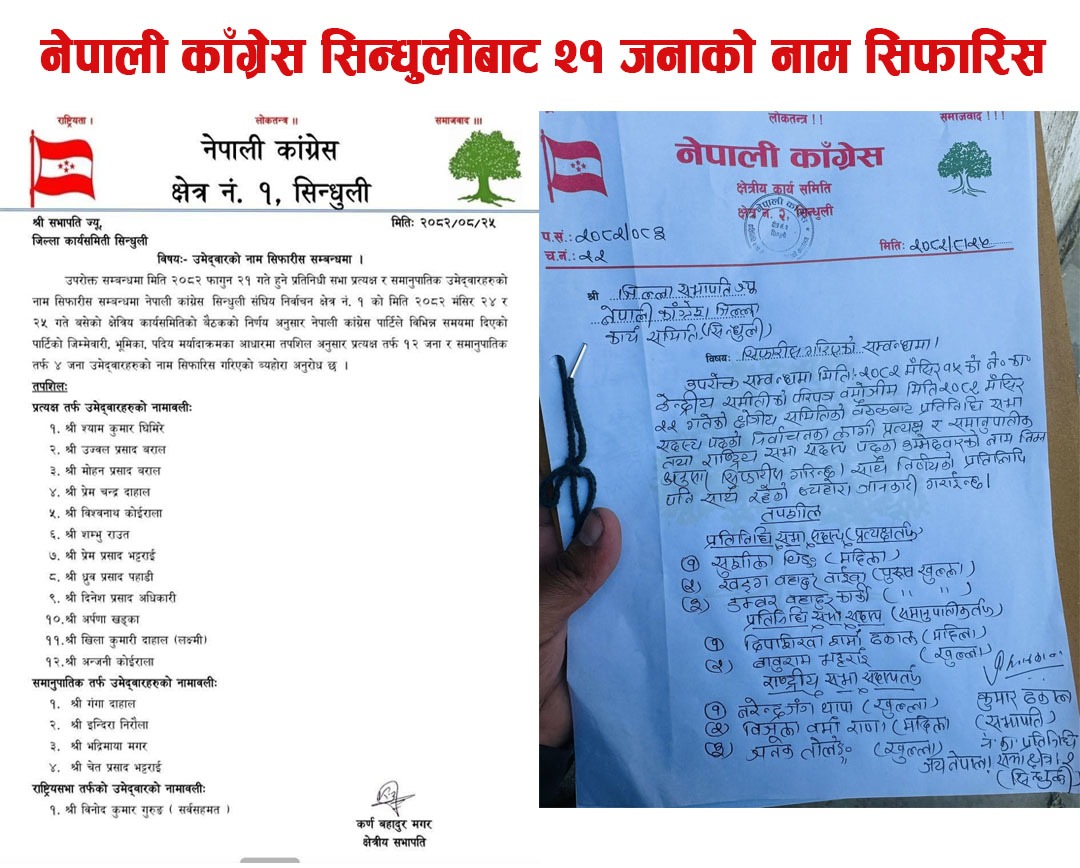 नेपाली काँग्रेस सिन्धुलीबाट २१ जनाको नाम सिफारिस
राष्ट्रियता ।
लोकतन्त्र ॥
समाजवाद ॥।
नेपाली कांग्रेस
क्षेत्र नं. १, सिन्धुली
श्री सभापति ज्यू,
मितिः २०८२/०८/२५
जिल्ला कार्यसमिती सिन्धुली
विषयः- उमेद्वारको नाम सिफारीस सम्बन्धमा ।
उपरोक्त सम्बन्धमा मिति २०८२ फागुन २१ गते हुने प्रतिनिधी सभा प्रत्यक्ष र समानुपातिक उमेद्वारहरुको
नाम सिफारीस सम्बन्धमा नेपाली कांग्रेस सिन्धुली संघिय निर्वाचन क्षेत्र नं. १ को मिति २०८२ मंसिर २४ र
२५ गते बसेको क्षेत्रिय कार्यसमितिको बैठकको निर्णय अनुसार नेपाली कांग्रेस पार्टिले विभिन्न समयमा दिएको
पार्टिको जिम्मेवारी, भूमिका, पदिय मर्यादाक्रमका आधारमा तपशिल अनुसार प्रत्यक्ष तर्फ १२ जना र समानुपातिक
तर्फ ४ जना उमेद्वारहरुको नाम सिफारिस गरिएको ब्यहोरा अनुरोध छ ।
तपशिलः
प्रत्यक्ष तर्फ उमेद्वारहरुको नामावलीः
१. श्री श्याम कुमार घिमिरे
२. श्री उज्वल प्रसाद बराल
३. श्री मोहन प्रसाद बराल
४. श्री प्रेम चन्द्र दाहाल
५. श्री विश्वनाथ कोईराला
६. श्री शम्भु राउत
७. श्री प्रेम प्रसाद भट्टराई
८. श्री ध्रुव प्रसाद पहाडी
९. श्री दिनेश प्रसाद अधिकारी
१०.श्री अर्पणा खड्का
११.श्री खिला कुमारी दाहाल (लक्ष्मी)
१२.श्री अन्जनी कोईराला
समानुपातिक तर्फ उमेद्वारहरुको नामावलीः
१. श्री गंगा दाहाल
२. श्री इन्दिरा निरौला
३. श्री भद्रिमाया मगर
४. श्री चेत प्रसाद भट्टराई
राष्ट्रियसभा तर्फको उमेद्वारहरुको नामावलीः
१. श्री विनोद कुमार गुरुङ ( सर्वसहमत )
कर्ण बहादुर मगर
क्षेत्रीय सभापति
लोकतन्त्र !!
समाजवाद !!!
नेपाली काँग्रेस
क्षेत्रीय कार्य समिति
क्षेत्र नं. २, सिन्धुली
प.सं.: २०८२/०८३
मिति: २०८२/८/२५
च.नं.: २२
श्री जिल्ला सभापति ज्यू
नेपाली काँग्रेस जिल्ला
कार्य समिति (सिन्धुली)
विषयः सिफारीस गरिएको सम्बन्धमा।
उपरोक्त सम्बन्धमा मितिः २०८२ मँसिर १५ को ने० का०
केन्द्रीय समीतीको परिपत्र बमोजीम मिति २०८२ मँसिर
२२ गतेको क्षेत्रीय समितिको बैठकबाट प्रतिनिधि सभा
सदस्य पदको निर्वाचनका लागी प्रत्यक्ष र समानुपातीक
तथा राष्ट्रिय सभा सदस्य पदका उम्मेदवारको नाम निम्न
सिफारीस गरिन्छ। साथै निर्णयको प्रतिलिपि
पनि साथै रहेको ब्यहोरा जानकारी गराईन्छ।
तपशील
प्रतिनिधि सभा सदस्य (प्रत्यक्षतर्फ)
१ सुशीला थिङ (महिला)
२ खड्ग बहादुर (पुरुष खुल्ला)
३ डम्बर बहादुर कार्की ( " " )
प्रतिनिधि सभा सदस्य (समानुपातीकतर्फ)
१ शर्मा ढकाल (महिला)
२ बाबुराम भट्टराई (खुल्ला)
राष्ट्रीय सभा सदस्यतर्फ
१ नरेन्द्रजंग थापा (खुल्ला)
२ विजुला वर्मा राणा (महिला)
३ (खुल्ला)
कुमार ढकाल
(सभापति)
ने.का. प्रतिनिधि
सभा क्षेत्र २
जय नेपाल।
(सिन्धुली)